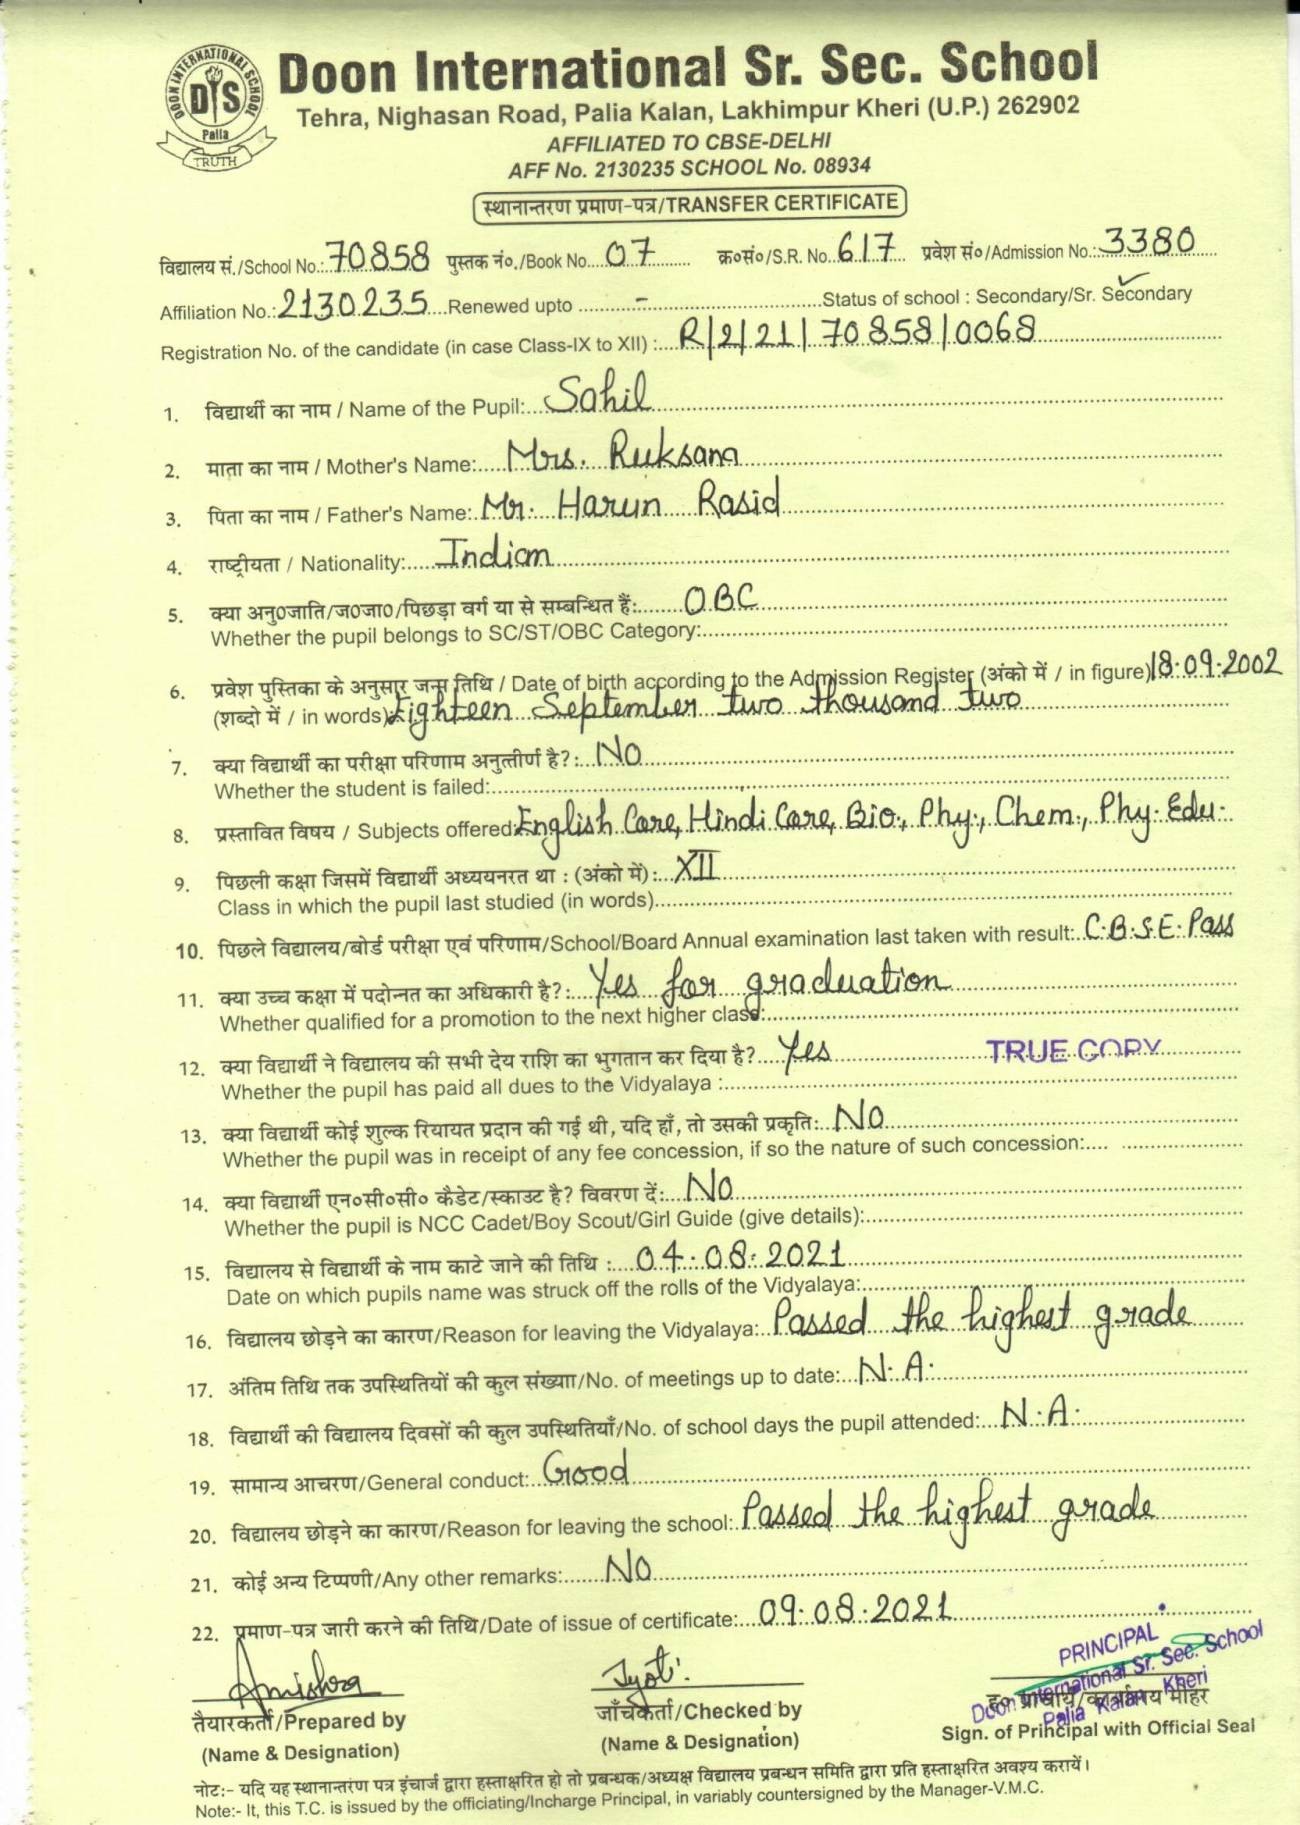 DOON INTERNATIONAL SCHOOL
DIS
Palia
TRUTH
Doon International Sr. Sec. School
Tehra, Nighasan Road, Palia Kalan, Lakhimpur Kheri (U.P.) 262902
AFFILIATED TO CBSE-DELHI
AFF No. 2130235 SCHOOL No. 08934
स्थानान्तरण प्रमाण-पत्र/TRANSFER CERTIFICATE
विद्यालय सं./School No.: 70858 पुस्तक नं०./Book No. 07 क्र०सं०/S.R. No. 617 प्रवेश सं०/Admission No.: 3380
Affiliation No.: 2130235 Renewed upto - Status of school : Secondary/Sr. Secondary
Registration No. of the candidate (in case Class-IX to XII) : R/2/21/70858/0068
1. विद्यार्थी का नाम / Name of the Pupil: Sahil
2. माता का नाम / Mother's Name: Mrs. Ruksana
3. पिता का नाम / Father's Name: Mr. Harun Rasid
4. राष्ट्रीयता / Nationality: Indian
5. क्या अनु०जाति/ज०जा०/पिछड़ा वर्ग या से सम्बन्धित हैं: OBC
Whether the pupil belongs to SC/ST/OBC Category:
6. प्रवेश पुस्तिका के अनुसार जन्म तिथि / Date of birth according to the Admission Register (अंको में / in figure) 18.09.2002
(शब्दो में / in words) Eighteen September two thousand two
7. क्या विद्यार्थी का परीक्षा परिणाम अनुत्तीर्ण है?: No
Whether the student is failed:
8. प्रस्तावित विषय / Subjects offered: English Core, Hindi Core, Bio., Phy., Chem., Phy. Edu.
9. पिछली कक्षा जिसमें विद्यार्थी अध्ययनरत था : (अंको में): XII
Class in which the pupil last studied (in words)
10. पिछले विद्यालय/बोर्ड परीक्षा एवं परिणाम/School/Board Annual examination last taken with result: C.B.S.E. Pass
11. क्या उच्च कक्षा में पदोन्नत का अधिकारी है?: Yes for graduation
Whether qualified for a promotion to the next higher class:
12. क्या विद्यार्थी ने विद्यालय की सभी देय राशि का भुगतान कर दिया है? Yes TRUE COPY
Whether the pupil has paid all dues to the Vidyalaya :
13. क्या विद्यार्थी कोई शुल्क रियायत प्रदान की गई थी, यदि हाँ, तो उसकी प्रकृति: No
Whether the pupil was in receipt of any fee concession, if so the nature of such concession:
14. क्या विद्यार्थी एन०सी०सी० कैडेट/स्काउट है? विवरण दें: No
Whether the pupil is NCC Cadet/Boy Scout/Girl Guide (give details):
15. विद्यालय से विद्यार्थी के नाम काटे जाने की तिथि : 04.08.2021
Date on which pupils name was struck off the rolls of the Vidyalaya:
16. विद्यालय छोड़ने का कारण/Reason for leaving the Vidyalaya: Passed the highest grade
17. अंतिम तिथि तक उपस्थितियों की कुल संख्याा/No. of meetings up to date: N.A.
18. विद्यार्थी की विद्यालय दिवसों की कुल उपस्थितियाँ/No. of school days the pupil attended: N.A.
19. सामान्य आचरण/General conduct: Good
20. विद्यालय छोड़ने का कारण/Reason for leaving the school: Passed the highest grade
21. कोई अन्य टिप्पणी/Any other remarks: No
22. प्रमाण-पत्र जारी करने की तिथि/Date of issue of certificate: 09.08.2021
Anishra Jyoti PRINCIPAL
Doon International Sr. Sec. School
Palia Kalan Kheri
तैयारकर्ता/Prepared by जाँचकर्ता/Checked by ह० प्राचार्य/कार्यालय मोहर
(Name & Designation) (Name & Designation) Sign. of Principal with Official Seal
नोट:- यदि यह स्थानान्तरंण पत्र इंचार्ज द्वारा हस्ताक्षरित हो तो प्रबन्धक/अध्यक्ष विद्यालय प्रबन्धन समिति द्वारा प्रति हस्ताक्षरित अवश्य करायें।
Note:- It, this T.C. is issued by the officiating/Incharge Principal, in variably countersigned by the Manager-V.M.C.